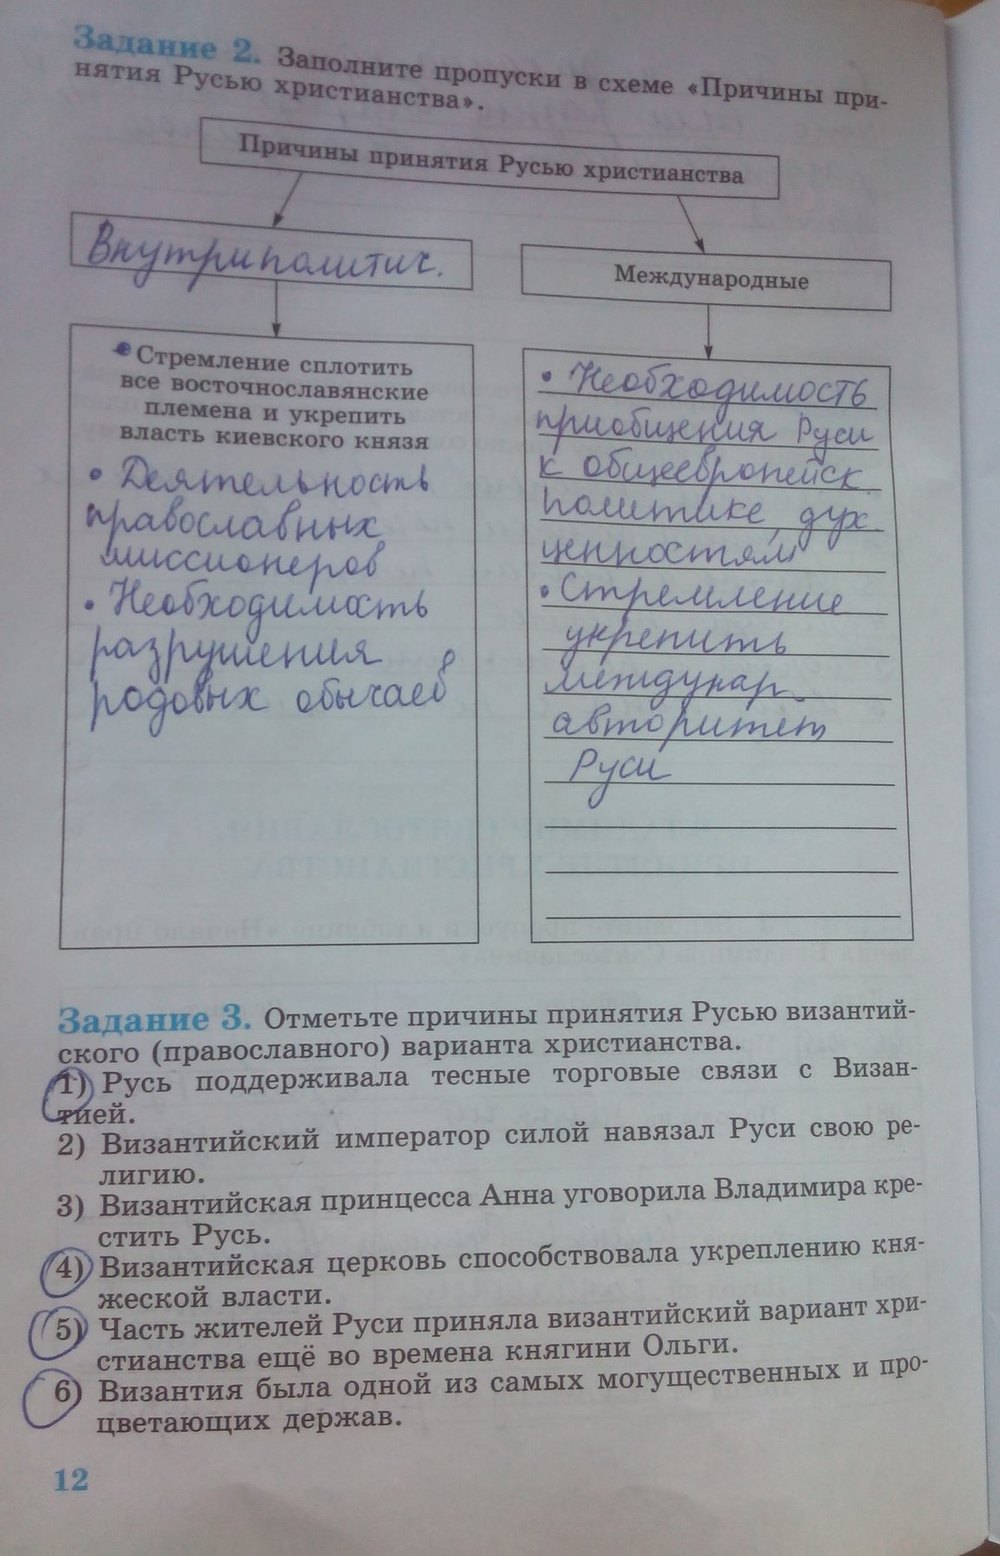 Задание 2. Заполните пропуски в схеме «Причины при-
нятия Русью христианства».
Причины принятия Русью христианства
Внутриполитич.
Международные
• Стремление сплотить
все восточнославянские
племена и укрепить
власть киевского князя
• Деятельность
православных
миссионеров
• Необходимость
разрушения
родовых обычаев
• Необходимость
приобщения Руси
к общеевропейск.
политике, дух.
ценностям
• Стремление
укрепить
междунар.
авторитет
Руси
Задание 3. Отметьте причины принятия Русью византий-
ского (православного) варианта христианства.
1) Русь поддерживала тесные торговые связи с Визан-
тией.
2) Византийский император силой навязал Руси свою ре-
лигию.
3) Византийская принцесса Анна уговорила Владимира кре-
стить Русь.
4) Византийская церковь способствовала укреплению кня-
жеской власти.
5) Часть жителей Руси приняла византийский вариант хри-
стианства ещё во времена княгини Ольги.
6) Византия была одной из самых могущественных и про-
цветающих держав.
12